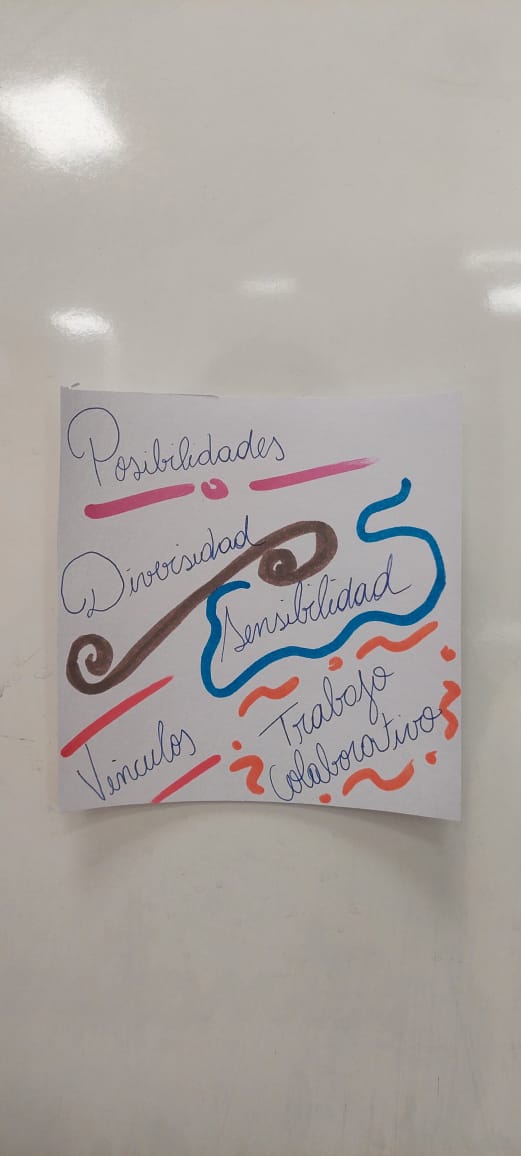 Posibilidades
Diversidad
Sensibilidad
Vínculos
Trabajo
Colaborativo